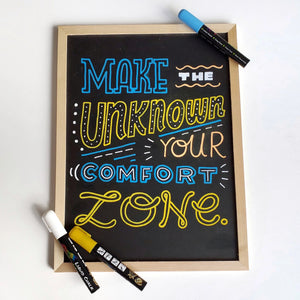 MAKE THE
UNKNOWN
YOUR
COMFORT
ZONE.